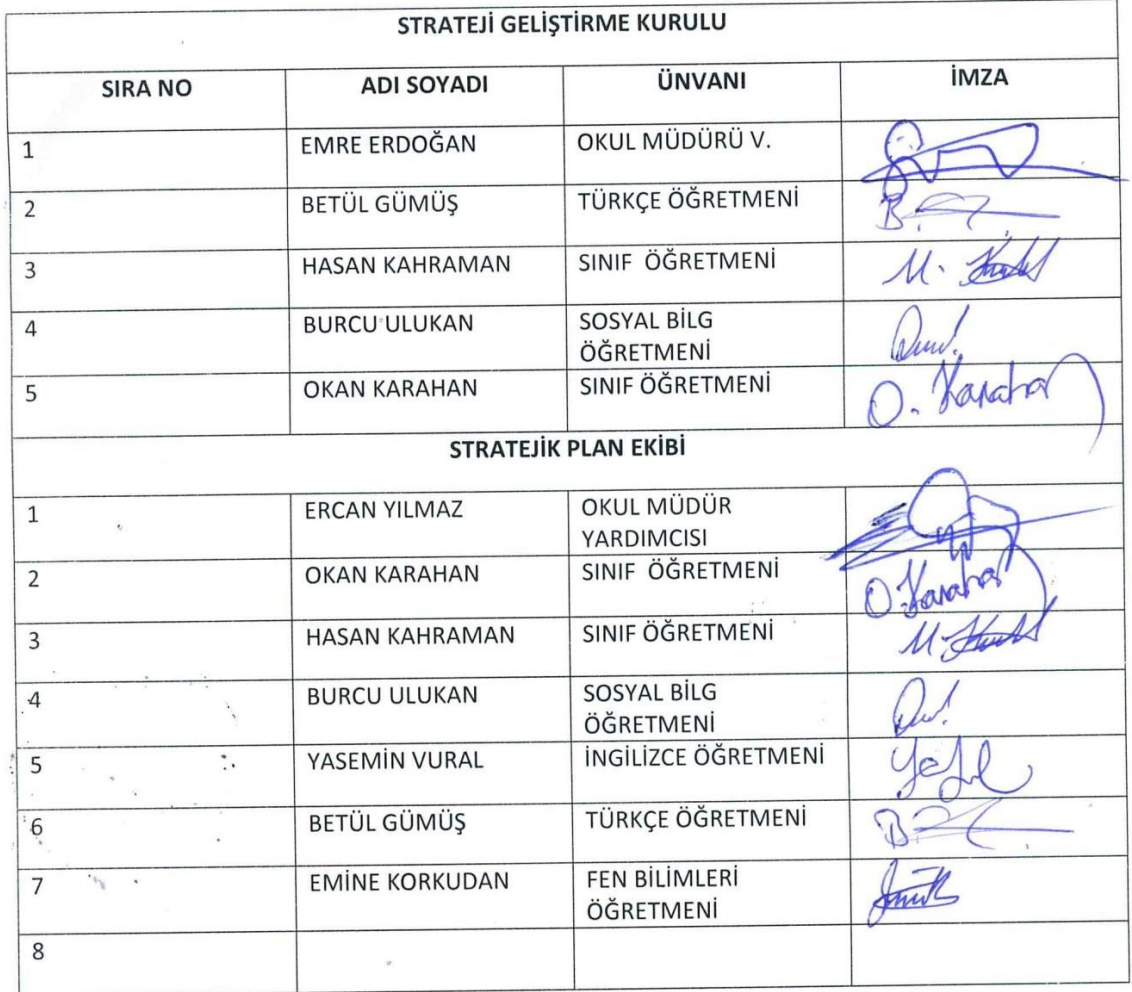 STRATEJİ GELİŞTİRME KURULU
SIRA NO ADI SOYADI ÜNVANI İMZA
1 EMRE ERDOĞAN OKUL MÜDÜRÜ V.
2 BETÜL GÜMÜŞ TÜRKÇE ÖĞRETMENİ
3 HASAN KAHRAMAN SINIF ÖĞRETMENİ
4 BURCU ULUKAN SOSYAL BİLG
ÖĞRETMENİ
5 OKAN KARAHAN SINIF ÖĞRETMENİ O. Karahan
STRATEJİK PLAN EKİBİ
1 ERCAN YILMAZ OKUL MÜDÜR
YARDIMCISI
2 OKAN KARAHAN SINIF ÖĞRETMENİ O. Karahan
3 HASAN KAHRAMAN SINIF ÖĞRETMENİ
4 BURCU ULUKAN SOSYAL BİLG
ÖĞRETMENİ
5 YASEMİN VURAL İNGİLİZCE ÖĞRETMENİ
6 BETÜL GÜMÜŞ TÜRKÇE ÖĞRETMENİ
7 EMİNE KORKUDAN FEN BİLİMLERİ
ÖĞRETMENİ
8